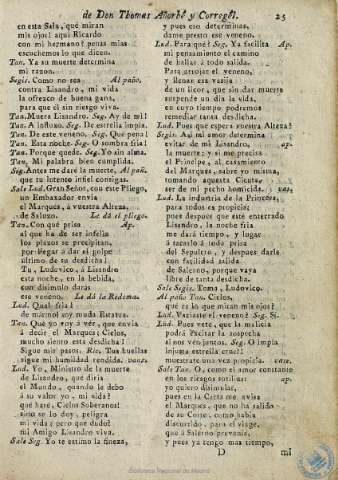 de Don Thomas Añorbe y Corregel. 25
en esta Sala, què miran
mis ojos! aqui Ricardo
con mi hermano? penas mias
escuchemos lo que dicen.
Tan. Ya su muerte determina
mi razon.
Segis. Como no sea Al paño.
contra Lisandro, mi vida
la ofrezco de buena gana,
para que èl sin riesgo viva.
Tan. Muera Lisandro. Seg. Ay de mi!
Tan. A influxo. Seg. De estrella impia.
Tan. De este veneno. Seg. Què pena!
Tan. Esta noche. Seg. O sombra fria!
Tan. Porque quede. Seg. Yo sin alma.
Tan. Mi palabra bien cumplida.
Seg. Antes me darè la muerte, Al pañ.
que tu intento infiel consigas.
Sale Lud. Gran Señor, con este Pliego,
un Embaxador envia
el Marquès, à vuestra Alteza,
de Saluzo. Le dà el pliego.
Tan. Con què prisa Ap.
al que ha de ser infeliz
los plazos se precipitan,
por llegar à dar el golpe
ultimo de su desdicha!
Tu, Ludovico, à Lisandro
esta noche, en la bebida,
con disimulo daràs
ese veneno. Le dà la Redoma.
Lud. Què
de marmol soy muda Estatua.
Tan. Què yo voy à vèr, que envia
à decir el Marquès: Cielos,
mucho siento esta desdicha!
Sigue mis pasos. Ric. Tus huellas
sigue mi humildad rendida. vanse.
Lud. Yo, Ministro de la muerte
de Lisandro, que diria
el Mundo, quando le debo
à su valor yo, mi vida?
què harè, Cielos Soberanos!
sino se lo doy, peligra
mi vida; pero què dudo?
mi Amigo Lisandro viva.
Sale Seg. Yo te estimo la fineza,
y pues eso determinas,
dame presto ese veneno.
Lud. Para què? Seg. Ya facilita Ap.
mi pensamiento el camino
de hallar à todo salida.
Para arrojarle en la tierra,
y llenar esa vasija
de un licor, que sin dar muerte
suspende un dia la vida,
en cuyo tiempo podremos
remediar tanta desdicha.
Lud. Pues què espera vuestra Alteza?
Segis. Asi mi amor determina
evitar de mi Lisandro, ap.
la muerte; y si me precisa
el Principe, al casamiento
del Marquès, sabre yo misma,
tomando aquesta Cicuta,
ser de mi pecho homicida. vase.
Lud. La industria de la Princesa,
para todos es propicia;
pues despues que estè enterrado
Lisandro, la noche fria
me darà tiempo, y lugar
à sacarlo à toda prisa
del Sepulcro, y despues darle
con facilidad salida
de Salerno, porque vaya
libre de tanta desdicha.
Sale Segis. Toma, Ludovico.
Al paño Tan. Cielos,
què es lo que miran mis ojos?
Lud. Vaciaste el veneno? Seg. Si.
Lud. Pues vete, que la malicia
podrà excitar la sospecha
si nos ven juntos. Seg. O impia,
injusta estrella cruel!
muestrate una vez propicia. vase.
Sale Tan. O, como el amor constante
en los riesgos sutiliza! ap.
yo quiero disimular,
pues en la Carta me avisa
el Marquès, que no ha salido
de su Corte, como determina,
para disponer el viage,
que à Salerno prevenia,
y pues ya tengo mas tiempo,
D mi
Biblioteca Regional de Madrid